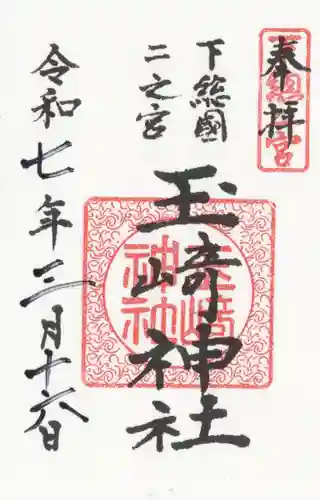 奉拝
下総國
二之宮
玉﨑神社
令和七年三月十六日
玉﨑
神社